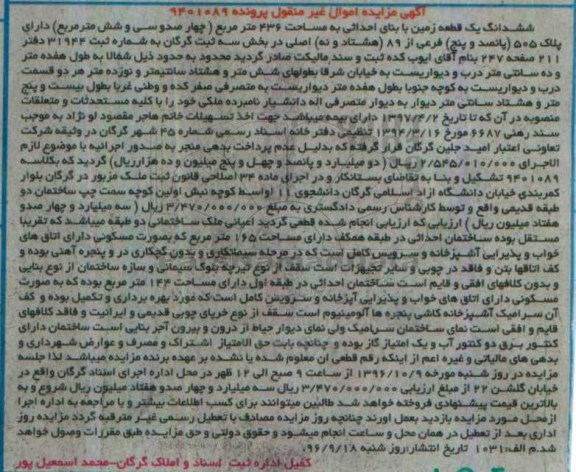 آگهی مزایده اموال غیر منقول پرونده ۹۴۰۱۰۸۹
ششدانگ یک قطعه زمین با بنای احداثی به مساحت ۴۳۶ متر مربع ( چهار صدو سی و شش مترمربع) دارای
پلاک ۵۰۵ (پانصد و پنج) فرعی از ۸۹ (هشتاد و نه) اصلی در بخش سه ثبت گرگان به شماره ثبت ۳۱۹۴۴ دفتر
۲۱۱ صفحه ۲۴۷ بنام آقای ایوب کده ثبت و سند مالکیت صادر گردید محدود به حدود ذیل شمالا به طول هفده متر
و ده سانتی متر درب و دیواریست به خیابان شرقا بطولهای شش متر و هشتاد سانتیمتر و نوزده متر هر دو قسمت
درب و دیواریست به کوچه جنوبا بطول هفده متر دیواریست به متصرفی صفر کده و وطنی غربا بطول بیست و پنج
متر و هشتاد سانتی متر دیوار به دیوار متصرفی اله دانشیار نامبرده ملکی خود را با کلیه مستحدثات و متعلقات
منصوبه در آن که تا تاریخ ۱۳۹۷/۴/۲ دارای بیمه میباشد جهت اخذ تسهیلات خانم هاجر مقصود لو نژاد به موجب
سند رهنی ۶۶۸۷ مورخ ۱۳۹۴/۳/۱۶ تنظیمی دفتر خانه اسناد رسمی شماره ۴۵ شهر گرگان در وثیقه شرکت
تعاونی اعتبار امید جلین گرگان قرار گرفته که بدلیل عدم پرداخت بدهی منجر به صدور اجرائیه با موضوع لازم
الاجرای ۲/۵۴۵/۰۱۰/۰۰۰ ریال ( دو میلیارد و پانصد و چهل و پنج میلیون و ده هزارریال) گردید که بکلاسه
۹۴۰۱۰۸۹ تشکیل و بنا به تقاضای بستانکار و در اجرای ماده ۳۴ اصلاحی قانون ثبت ملک مزبور در گرگان بلوار
کمربندی خیابان دانشگاه آزاد اسلامی گرگان دانشجوی ۱۱ اواسط کوچه نبش اولین کوچه سمت چپ ساختمان دو
طبقه قدیمی واقع و توسط کارشناس رسمی دادگستری به مبلغ ۳/۴۷۰/۰۰۰/۰۰۰ ریال ( سه میلیارد و چهار صدو
هفتاد میلیون ریال ) ارزیابی که ارزیابی انجام شده قطعی گردید اعیانی ملک ساختمانی دو طبقه میباشد که تقریبا
مستقل بوده ساختمان احداثی در طبقه همکف دارای مساحت ۱۶۵ متر مربع که بصورت مسکونی دارای اتاق های
خواب و پذیرایی آشپزخانه و سرویس کامل است که در مرحله سیمانکاری و بدون گچکاری در و پنجره آهنی بوده و
کف اتاقها بتن و فاقد در چوبی و سایر تجهیزات است سقف از نوع تیرچه بلوک سیمانی و سازه ساختمان از نوع بنایی
و بدون کلافهای افقی و قایم است ساختمان احداثی در طبقه اول دارای مساحت ۱۴۴ متر مربع بوده که به صورت
مسکونی دارای اتاق های خواب و پذیرایی آپزخانه و سرویس کامل است که مورد بهره برداری و تکمیل بوده و کف
آن سرامیک آشپزخانه کاشی پنجره ها آلومینیوم است سقف از نوع خرپای چوبی قدیمی و ایرانیت و فاقد کلافهای
قایم و افقی است نمای ساختمان سرامیک ولی نمای دیوار حیاط از درون و بیرون آجر بنایی است ساختمان دارای
کنتور بری دو کنتور آب و یک امتیاز گاز بوده و چنانچه بابت حق الامتیاز اشتراک و مصرف و عوارض شهرداری و
بدهی های مالیاتی و غیره اعم از اینکه رقم قطعی آن معلوم شده یا نشده بر عهده برنده مزایده میباشد لذا جلسه
مزایده در روز شنبه مورخه ۱۳۹۶/۱۰/۹ از ساعت ۹ صبح الی ۱۲ ظهر در محل اداره اجرای اسناد گرگان واقع در
خیابان گلشن ۲۲ از مبلغ ارزیابی ۳/۴۷۰/۰۰۰/۰۰۰ ریال سه میلیارد و چهار صدو هفتاد میلیون ریال شروع و به
بالاترین قیمت پیشنهادی فروخته خواهد شد طالبین میتوانند برای کسب اطلاعات بیشتر و با مراجعه به اداره اجرا
ازمحل مورد مزایده بازدید بعمل اورند چنانچه روز مزایده مصادف با تعطیل رسمی غیر مترقبه گردد مزایده روز
اداری بعد از تعطیل در همان محل و ساعت انجام میشود و حقوق دولتی و حق مزایده طبق مقررات وصول خواهد
شد.م الف:۱۰۳۱ تاریخ انتشار:روز شنبه ۹۶/۹/۱۸.
کفیل اداره ثبت اسناد و املاک گرگان-محمد اسمعیل پور